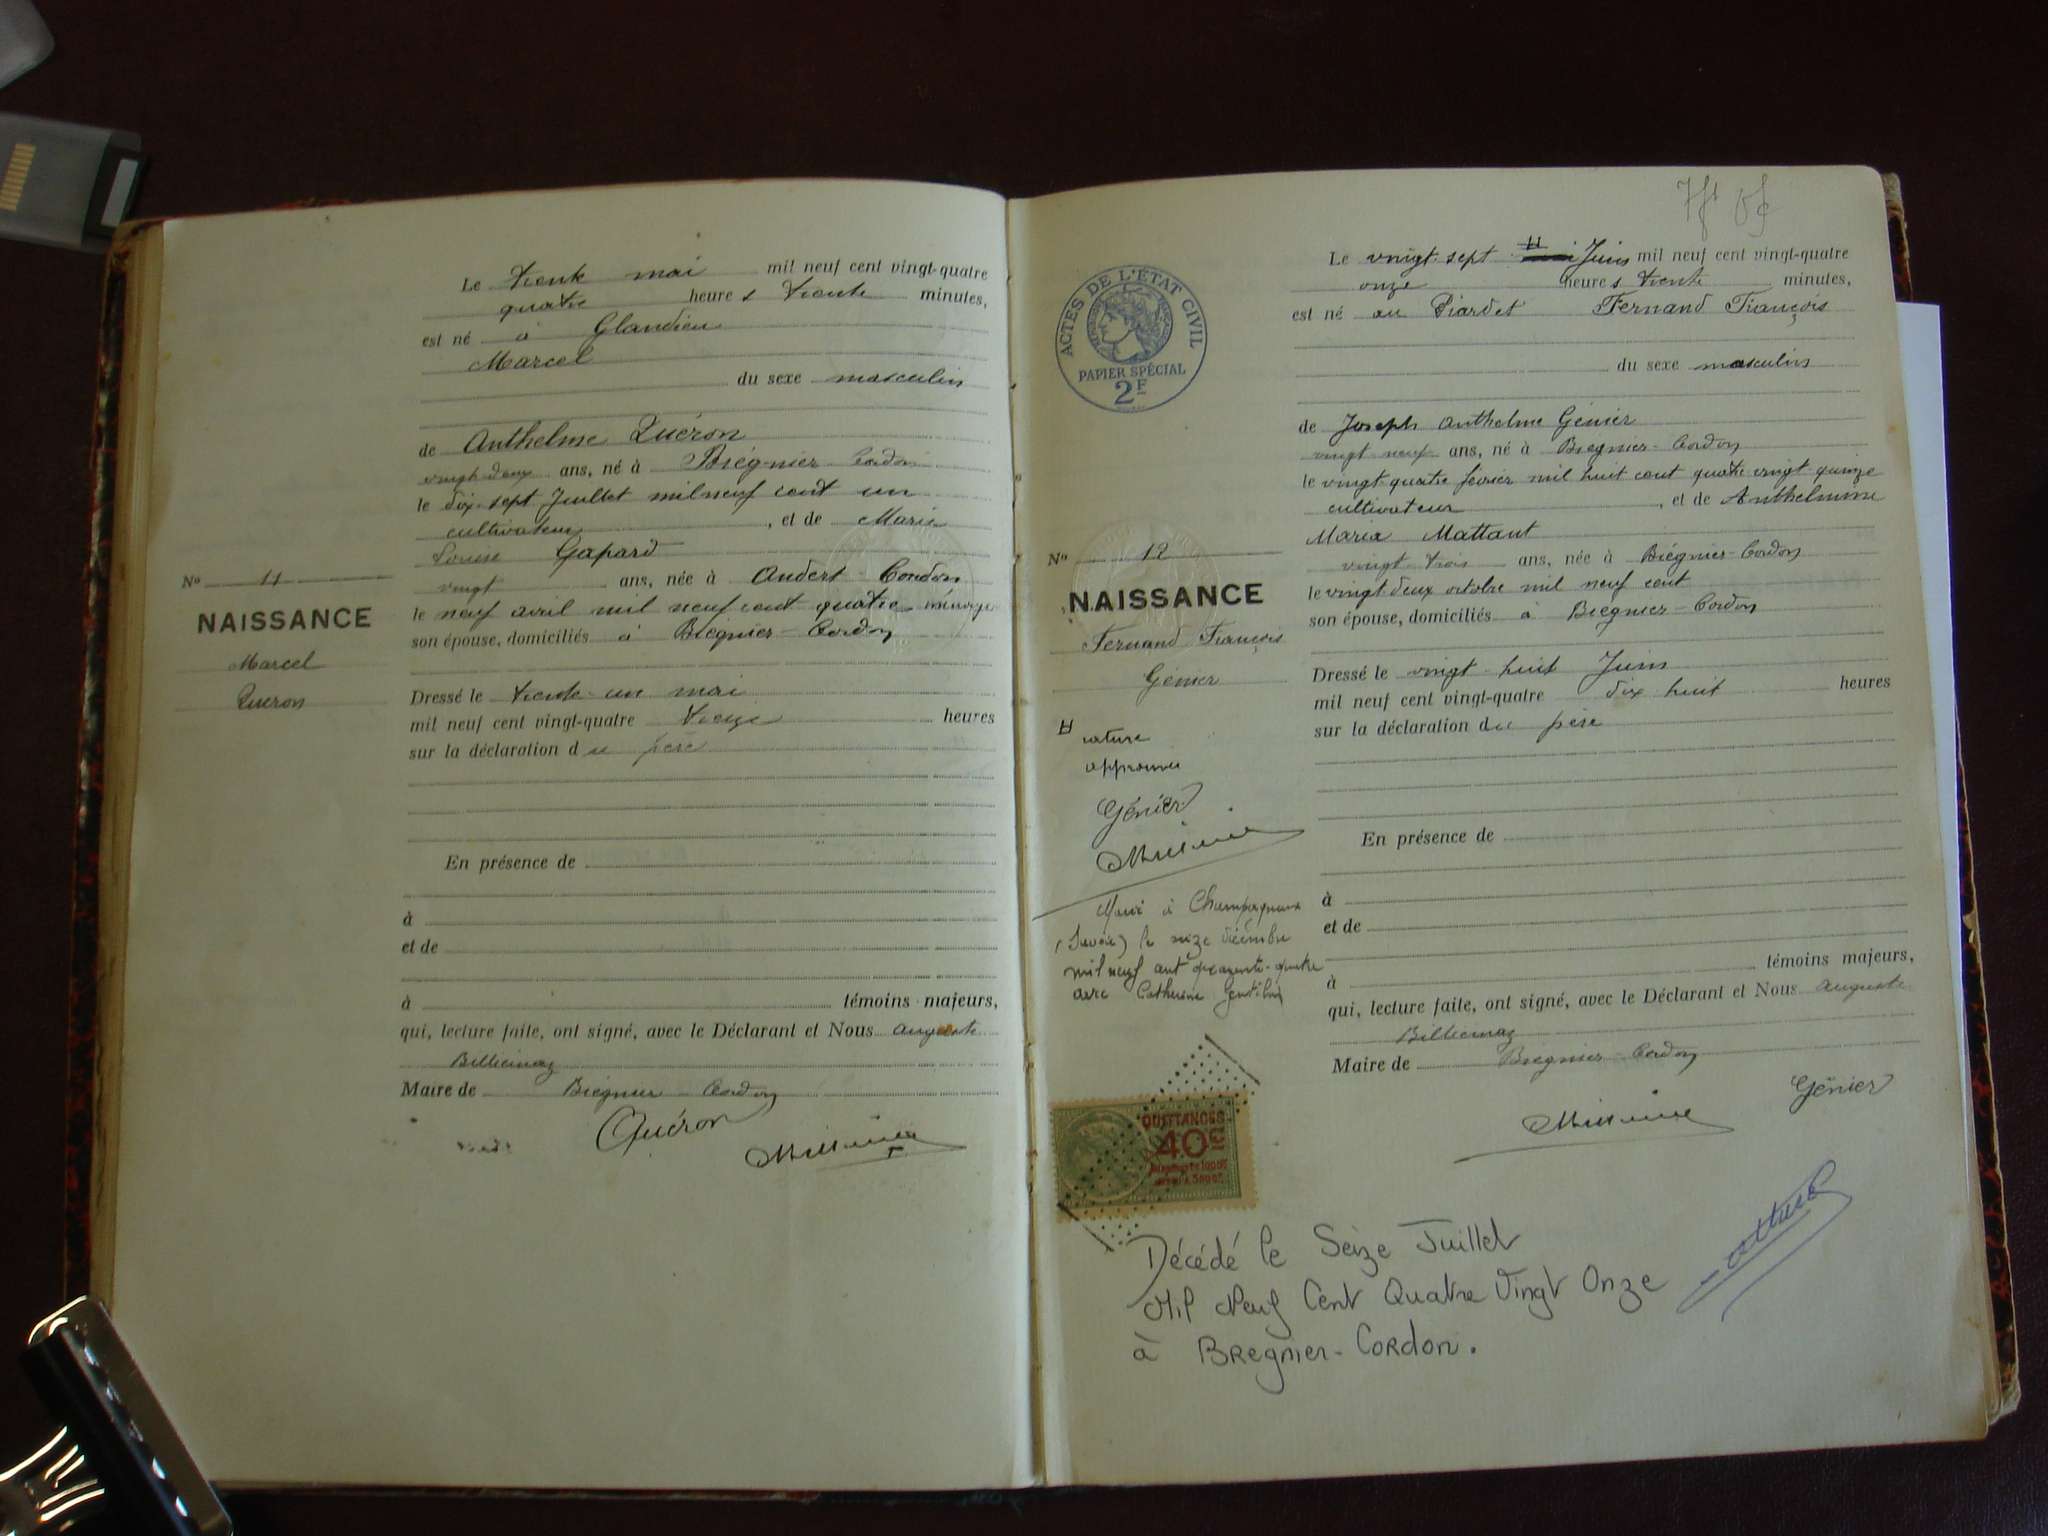 Le trente mai mil neuf cent vingt-quatre
quatre heures trente minutes,
est né à Glandieu
Marcel
du sexe masculin
de Anthelme Quéron
vingt-deux ans, né à Brégnier-Cordon
le dix sept Juillet mil neuf cent un
cultivateur, et de Marie
Louise Gapard
vingt ans, née à Andert-Condon
le neuf avril mil neuf cent quatre ménagère
son épouse, domiciliés à Brégnier-Cordon
No 11
NAISSANCE
Marcel
Quéron
Dressé le trente-un mai
mil neuf cent vingt-quatre treize heures
sur la déclaration du père
En présence de
à
et de
à témoins majeurs,
qui, lecture faite, ont signé, avec le Déclarant et Nous Auguste
Maire de Brégnier-Cordon
Quéron
Le vingt-sept Juin mil neuf cent vingt-quatre
onze heures trente minutes,
est né au Piardet Fernand François
du sexe masculin
ACTES DE L'ÉTAT CIVIL
PAPIER SPÉCIAL
2F
de Joseph Anthelme Génier
vingt neuf ans, né à Brégnier-Cordon
le vingt-quatre février mil huit cent quatre vingt-quinze
cultivateur, et de Anthelmine
Maria Mattant
vingt-trois ans, née à Brégnier-Cordon
le vingt deux octobre mil neuf cent
son épouse, domiciliés à Brégnier-Cordon
No 12
NAISSANCE
Fernand François
Génier
Dressé le vingt huit Juin
mil neuf cent vingt-quatre dix huit heures
sur la déclaration du père
rature
approuvée
Génier
En présence de
à
et de
à témoins majeurs,
qui, lecture faite, ont signé, avec le Déclarant et Nous Auguste
Maire de Brégnier-Cordon
Génier
Marié à Champagneux
(Savoie) le seize décembre
mil neuf cent quarante-quatre
avec Catherine
QUITTANCES
40c
Décédé le Seize Juillet
Mil Neuf Cent Quatre Vingt Onze
à Bregnier-Cordon.